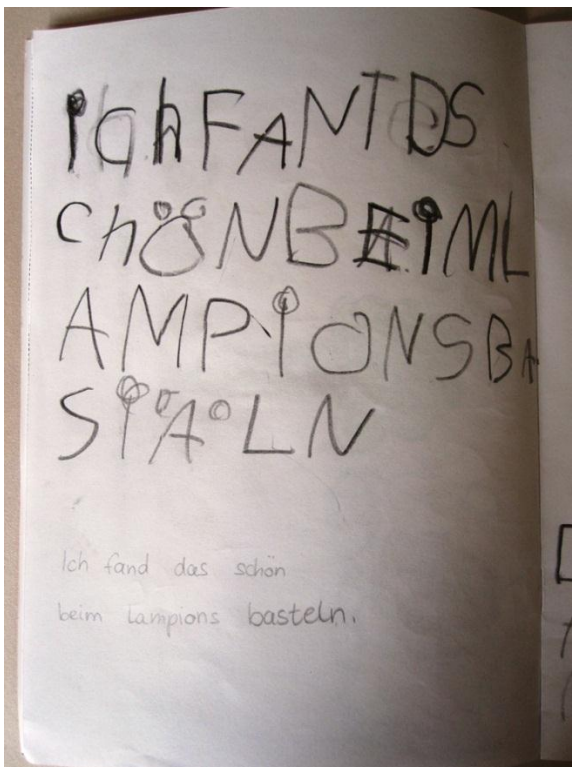 ichFANTDS
chÖNBEiML
AMPiONSBA
SiÄLN
Ich fand das schön
beim Lampions basteln.